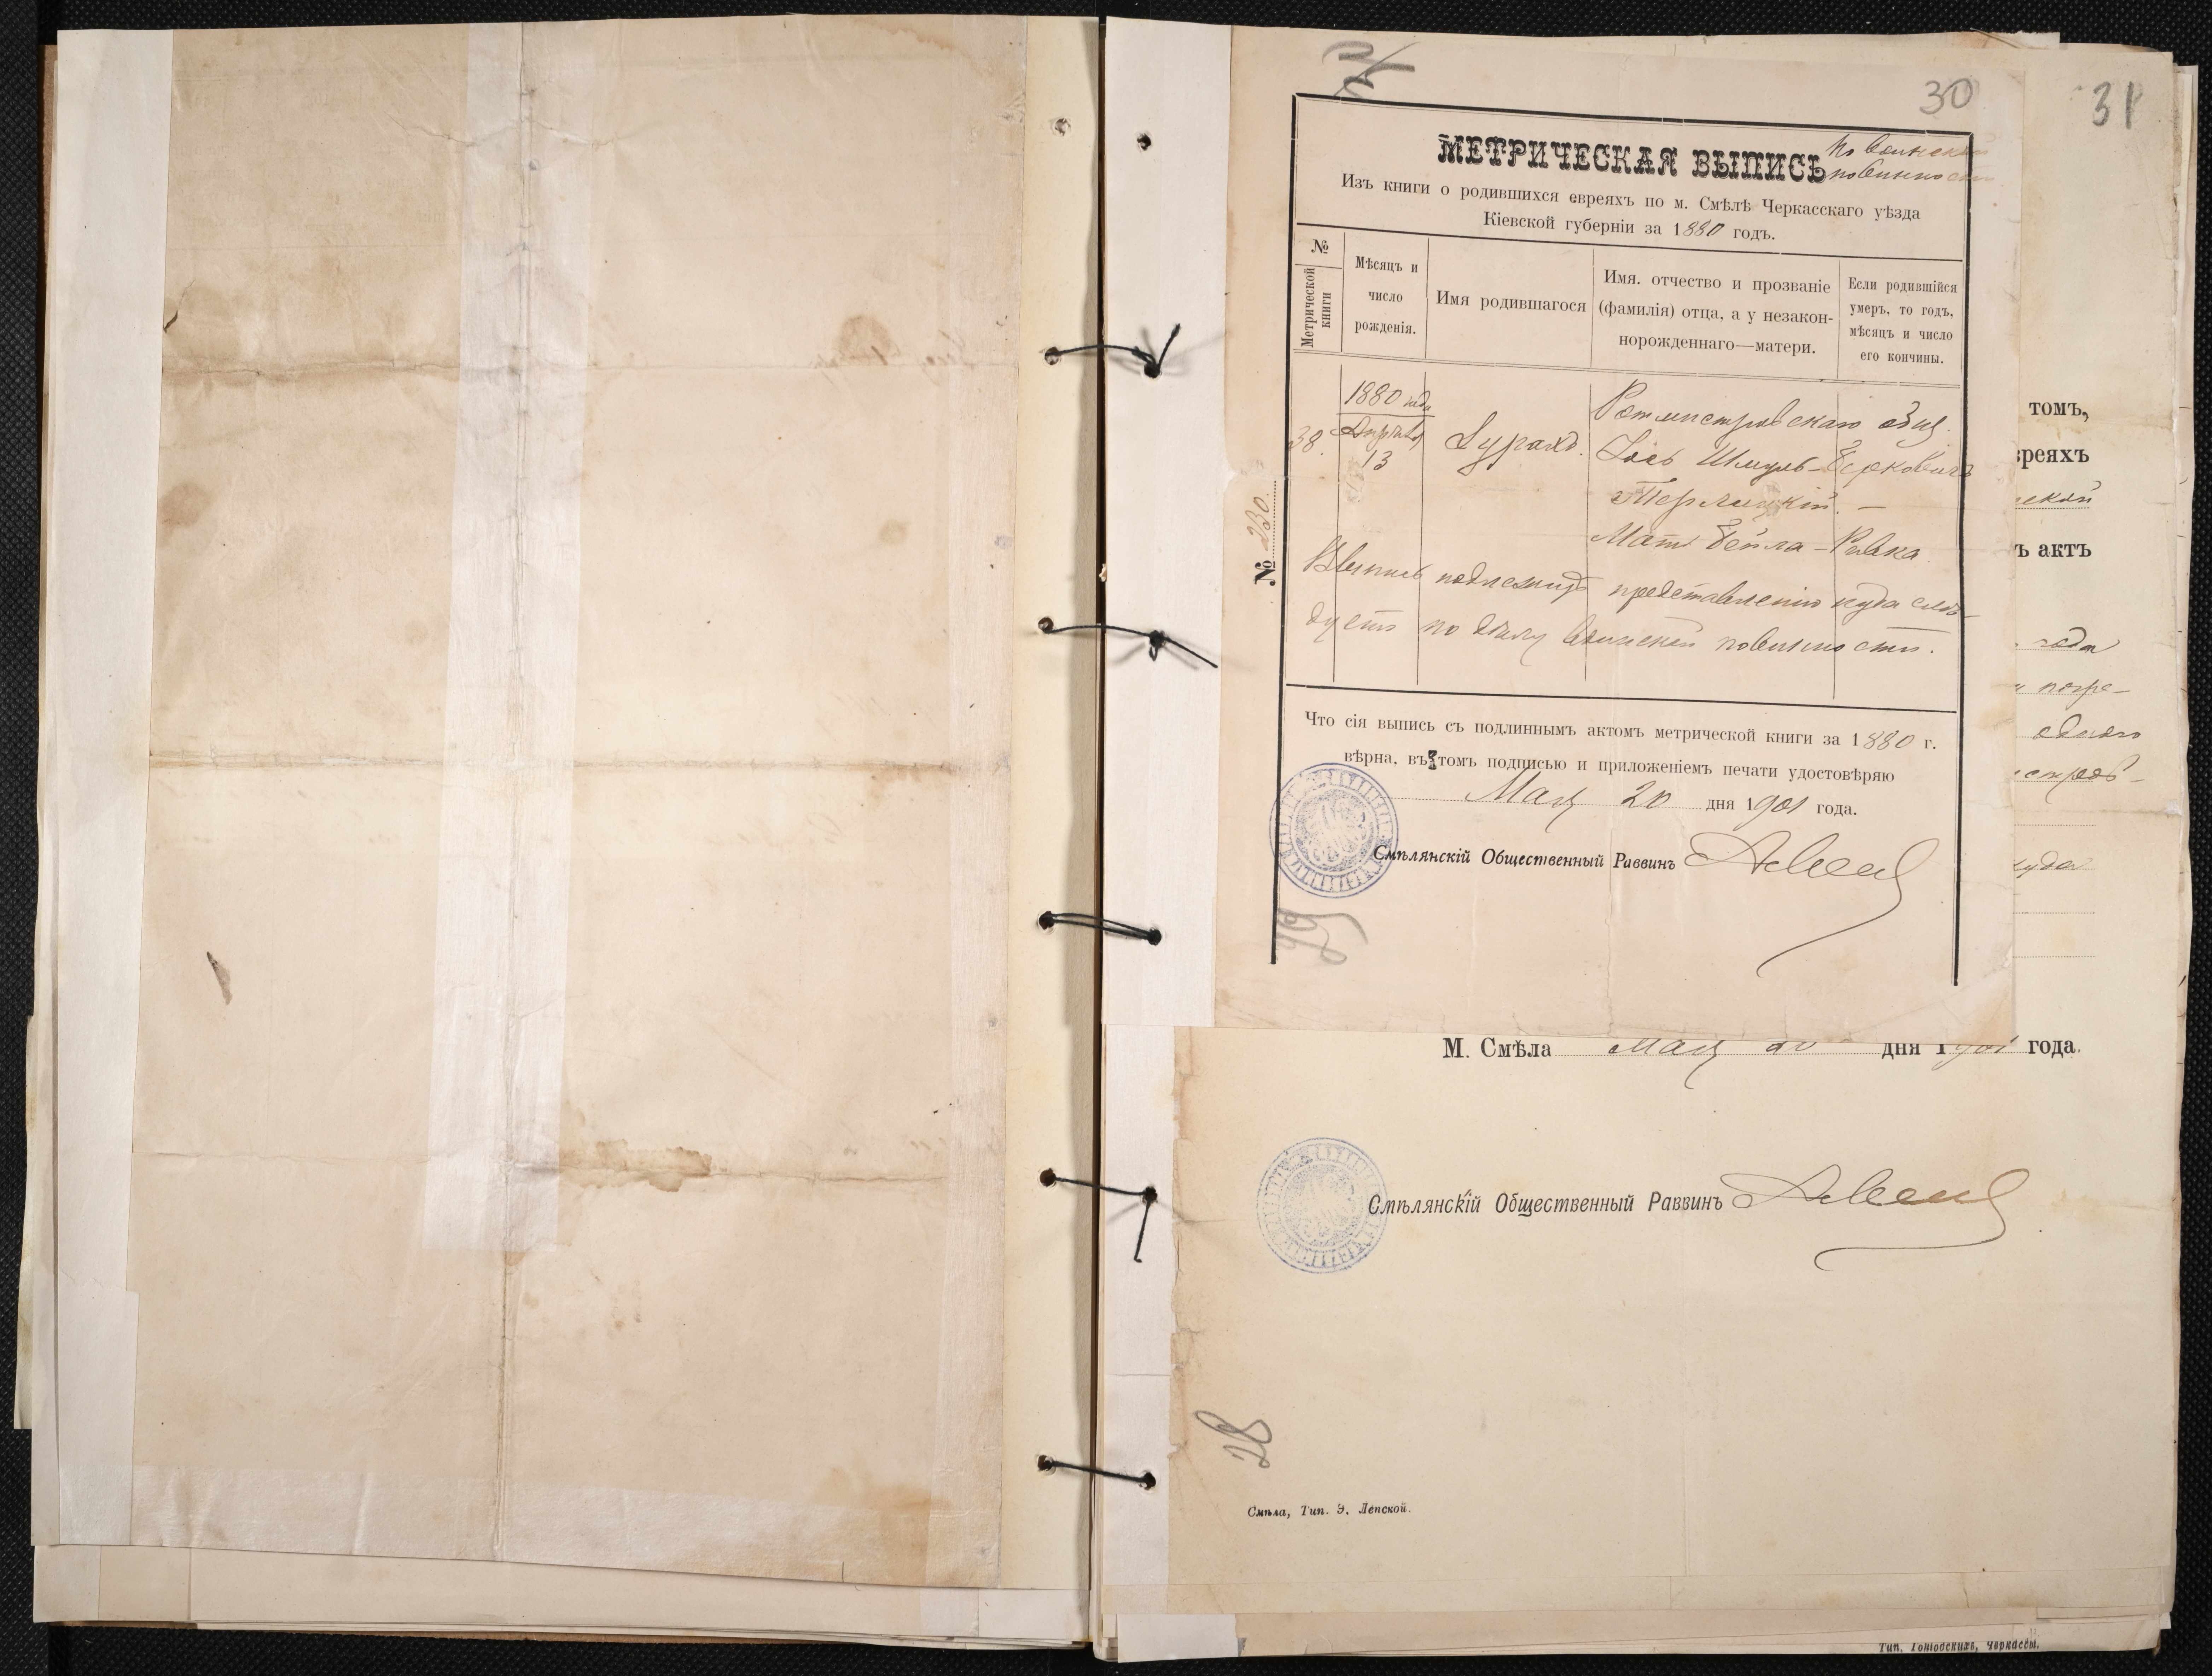 30
31
МЕТРИЧЕСКАЯ ВЫПИСЬ
По воинской
повинности
Изъ книги о родившихся евреяхъ по м. Смѣлѣ Черкасскаго уѣзда
Кіевской губерніи за 1880 годъ.
№
Метрической книги
Мѣсяцъ и число рожденія.
Имя родившагося
Имя. отчество и прозваніе (фамилія) отца, а у незакон-норожденнаго—матери.
Если родившійся умеръ, то годъ, мѣсяцъ и число его кончины.
38.
1880 года
Апрѣля
13
Ротмистровскаго общ.
Іось Шмуль-Берковичъ
Терлицкій. —
Мать Бейла-Ривка.
Выпись подлежитъ представленію куда слѣ-
дуетъ по дѣлу воинской повинности.
№ 230.
Что сія выпись съ подлиннымъ актомъ метрической книги за 1880 г.
вѣрна, въ томъ подписью и приложеніемъ печати удостовѣряю
Мая 20 дня 1901 года.
Смѣлянскій Общественный Раввинъ
29
томъ,
вреяхъ
ъ актъ
года
куда
М. Смѣла Мая 20 дня 1901 года.
Смѣлянскій Общественный Раввинъ
28
Смѣла, Тип. Э. Лепской.
Тип. Гонгодскихъ, Черкассы.